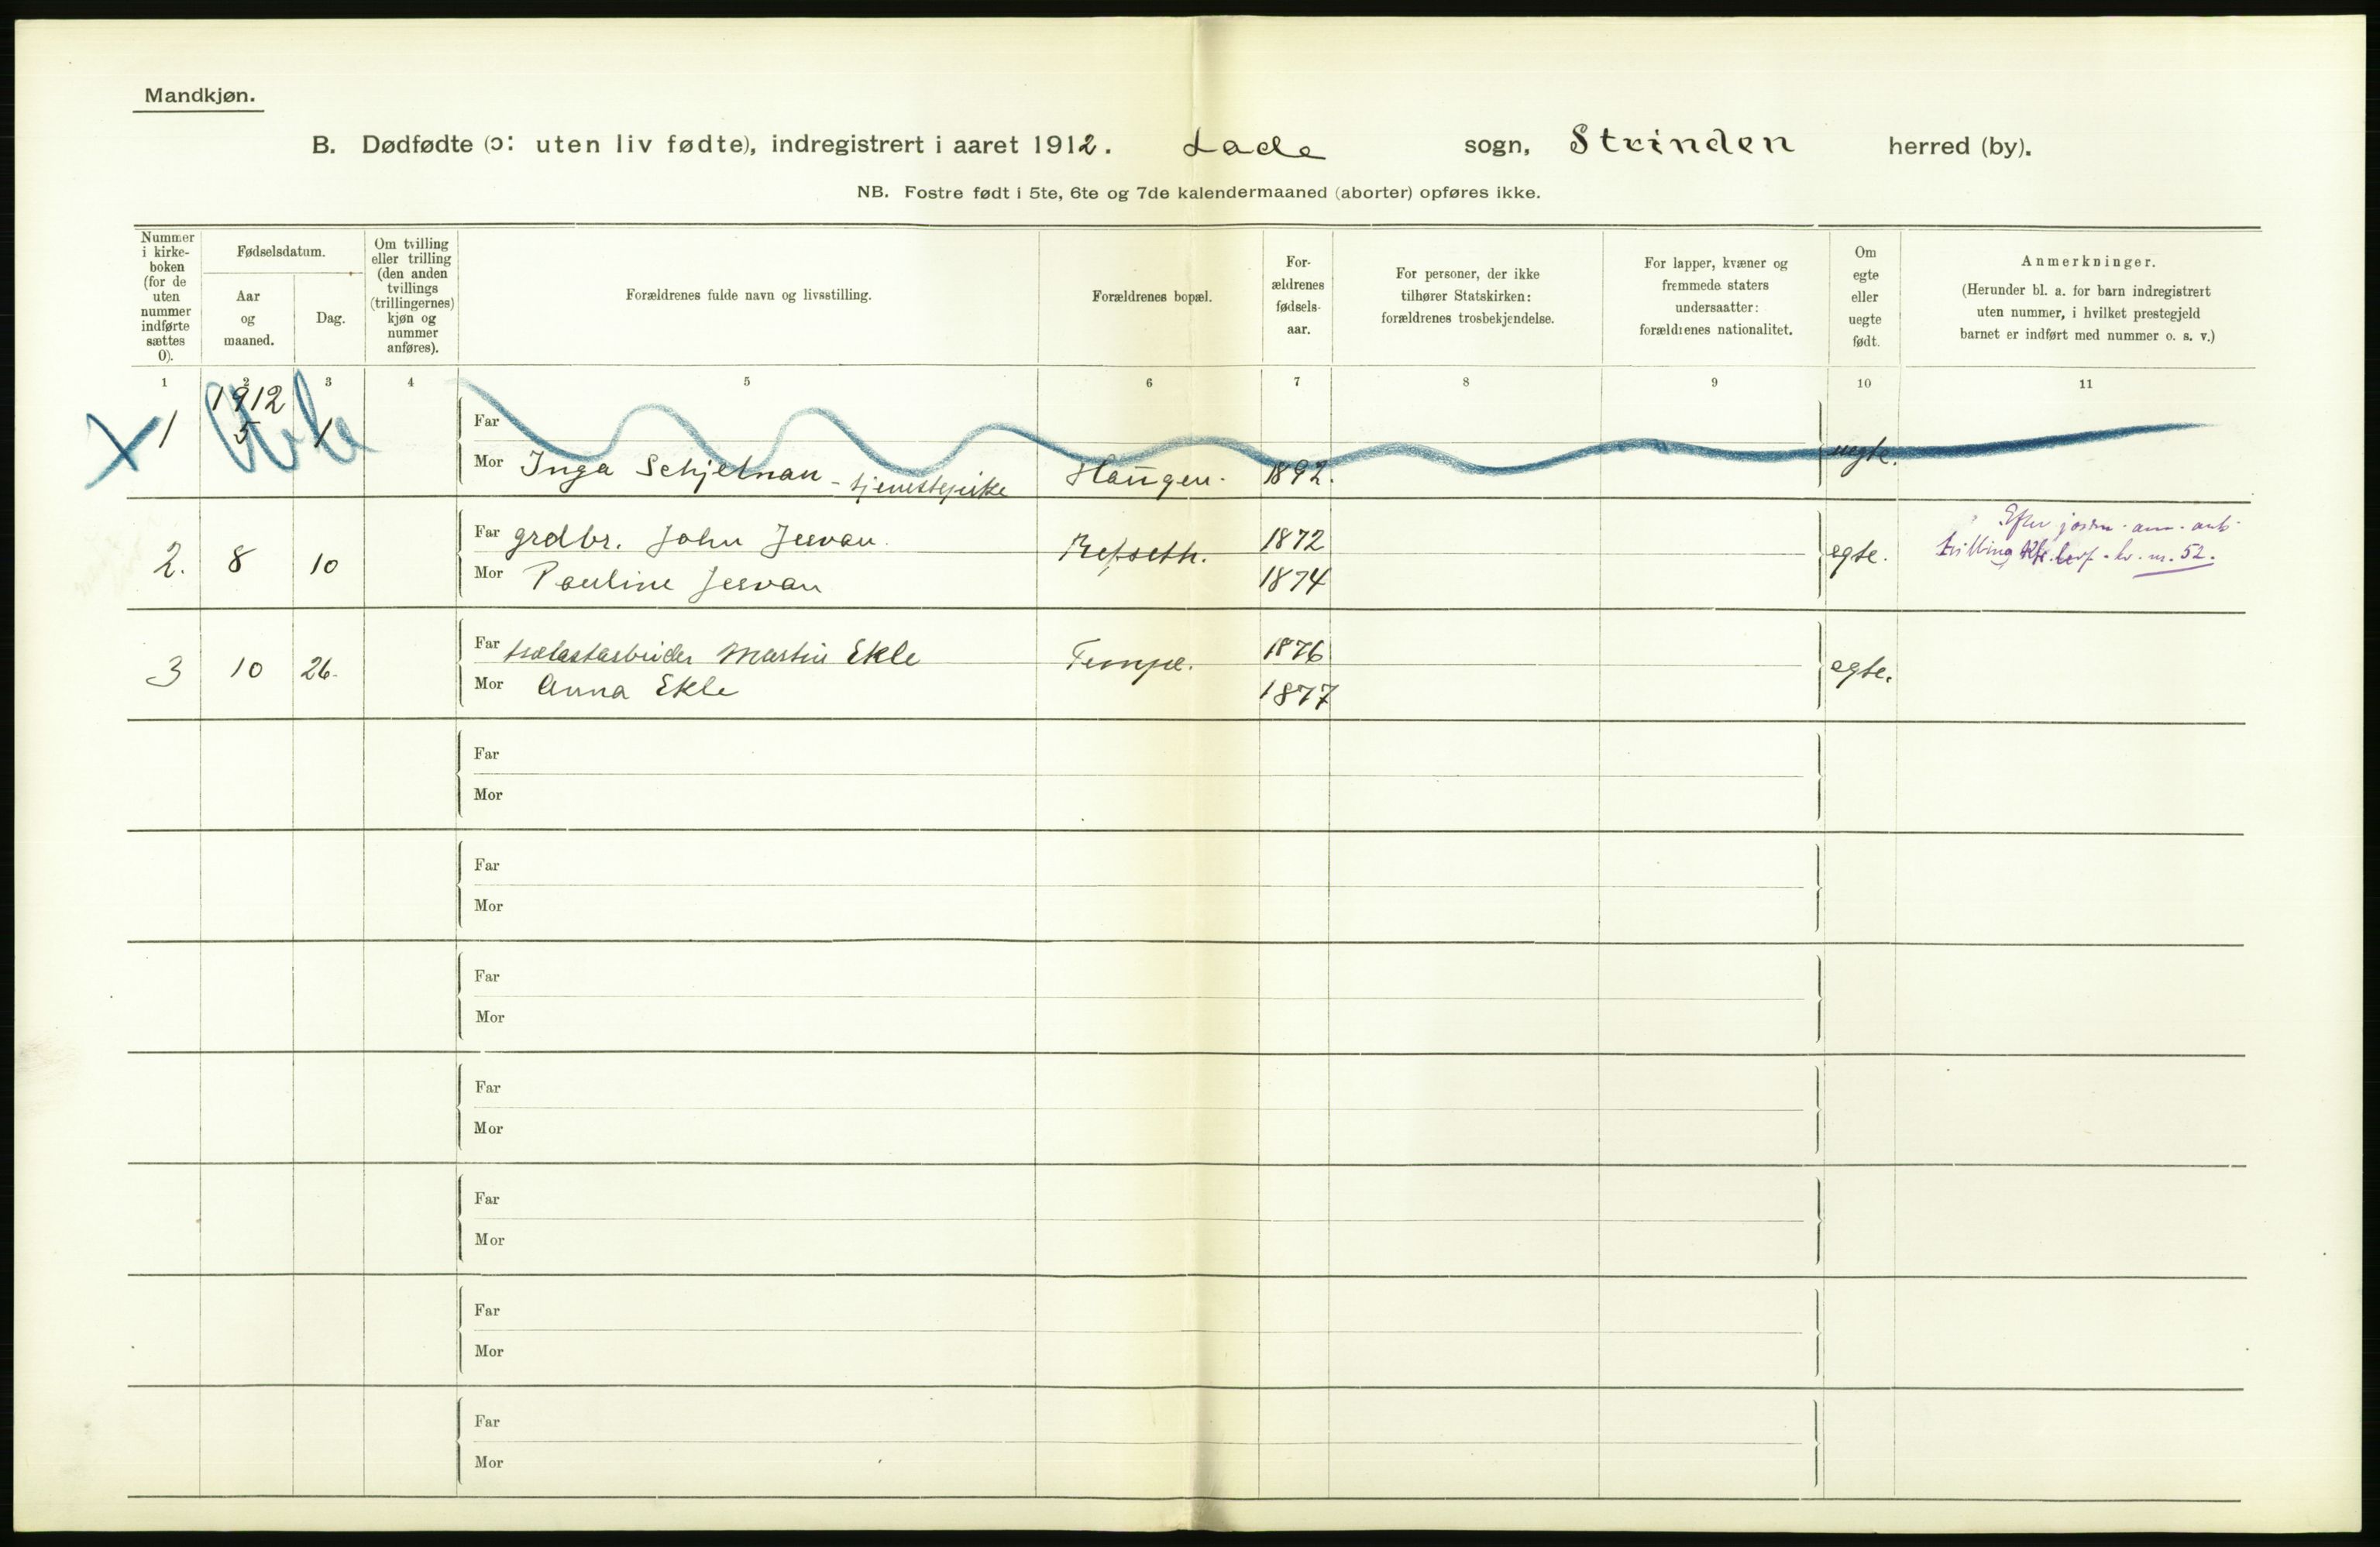 Mandkjøn.
B. Dødfødte (ɔ: uten liv fødte), indregistrert i aaret 1912. Lade sogn, Strinden herred (by).
NB. Fostre født i 5te, 6te og 7de kalendermaaned (aborter) opføres ikke.
Nummer i kirke-boken (for de uten nummer indførte sættes 0).
Fødselsdatum.
Aar og maaned.
Dag.
Om tvilling eller trilling (den anden tvillings (trillingernes) kjøn og nummer anføres).
Forældrenes fulde navn og livsstilling.
Forældrenes bopæl.
For-ældrenes fødsels-aar.
For personer, der ikke tilhører Statskirken: forældrenes trosbekjendelse.
For lapper, kvæner og fremmede staters undersaatter: forældrenes nationalitet.
Om egte eller uegte født.
Anmerkninger.
(Herunder bl. a. for barn indregistrert uten nummer, i hvilket prestegjeld barnet er indført med nummer o. s. v.)
1 2 3 4 5 6 7 8 9 10 11
1912
1 5 1 Far uegte.
Mor Inga Schjelnan - tjenestepike Haugen. 1892.
2. 8 10 Far grdbr. John Jesvan. Refseth. 1872 egte.
Mor Pauline Jesvan 1874
tvilling m. 52.
3 10 26. Far Martin Ekle Tempe. 1876 egte.
Mor Anna Ekle 1877
Far
Mor
Far
Mor
Far
Mor
Far
Mor
Far
Mor
Far
Mor
Far
Mor